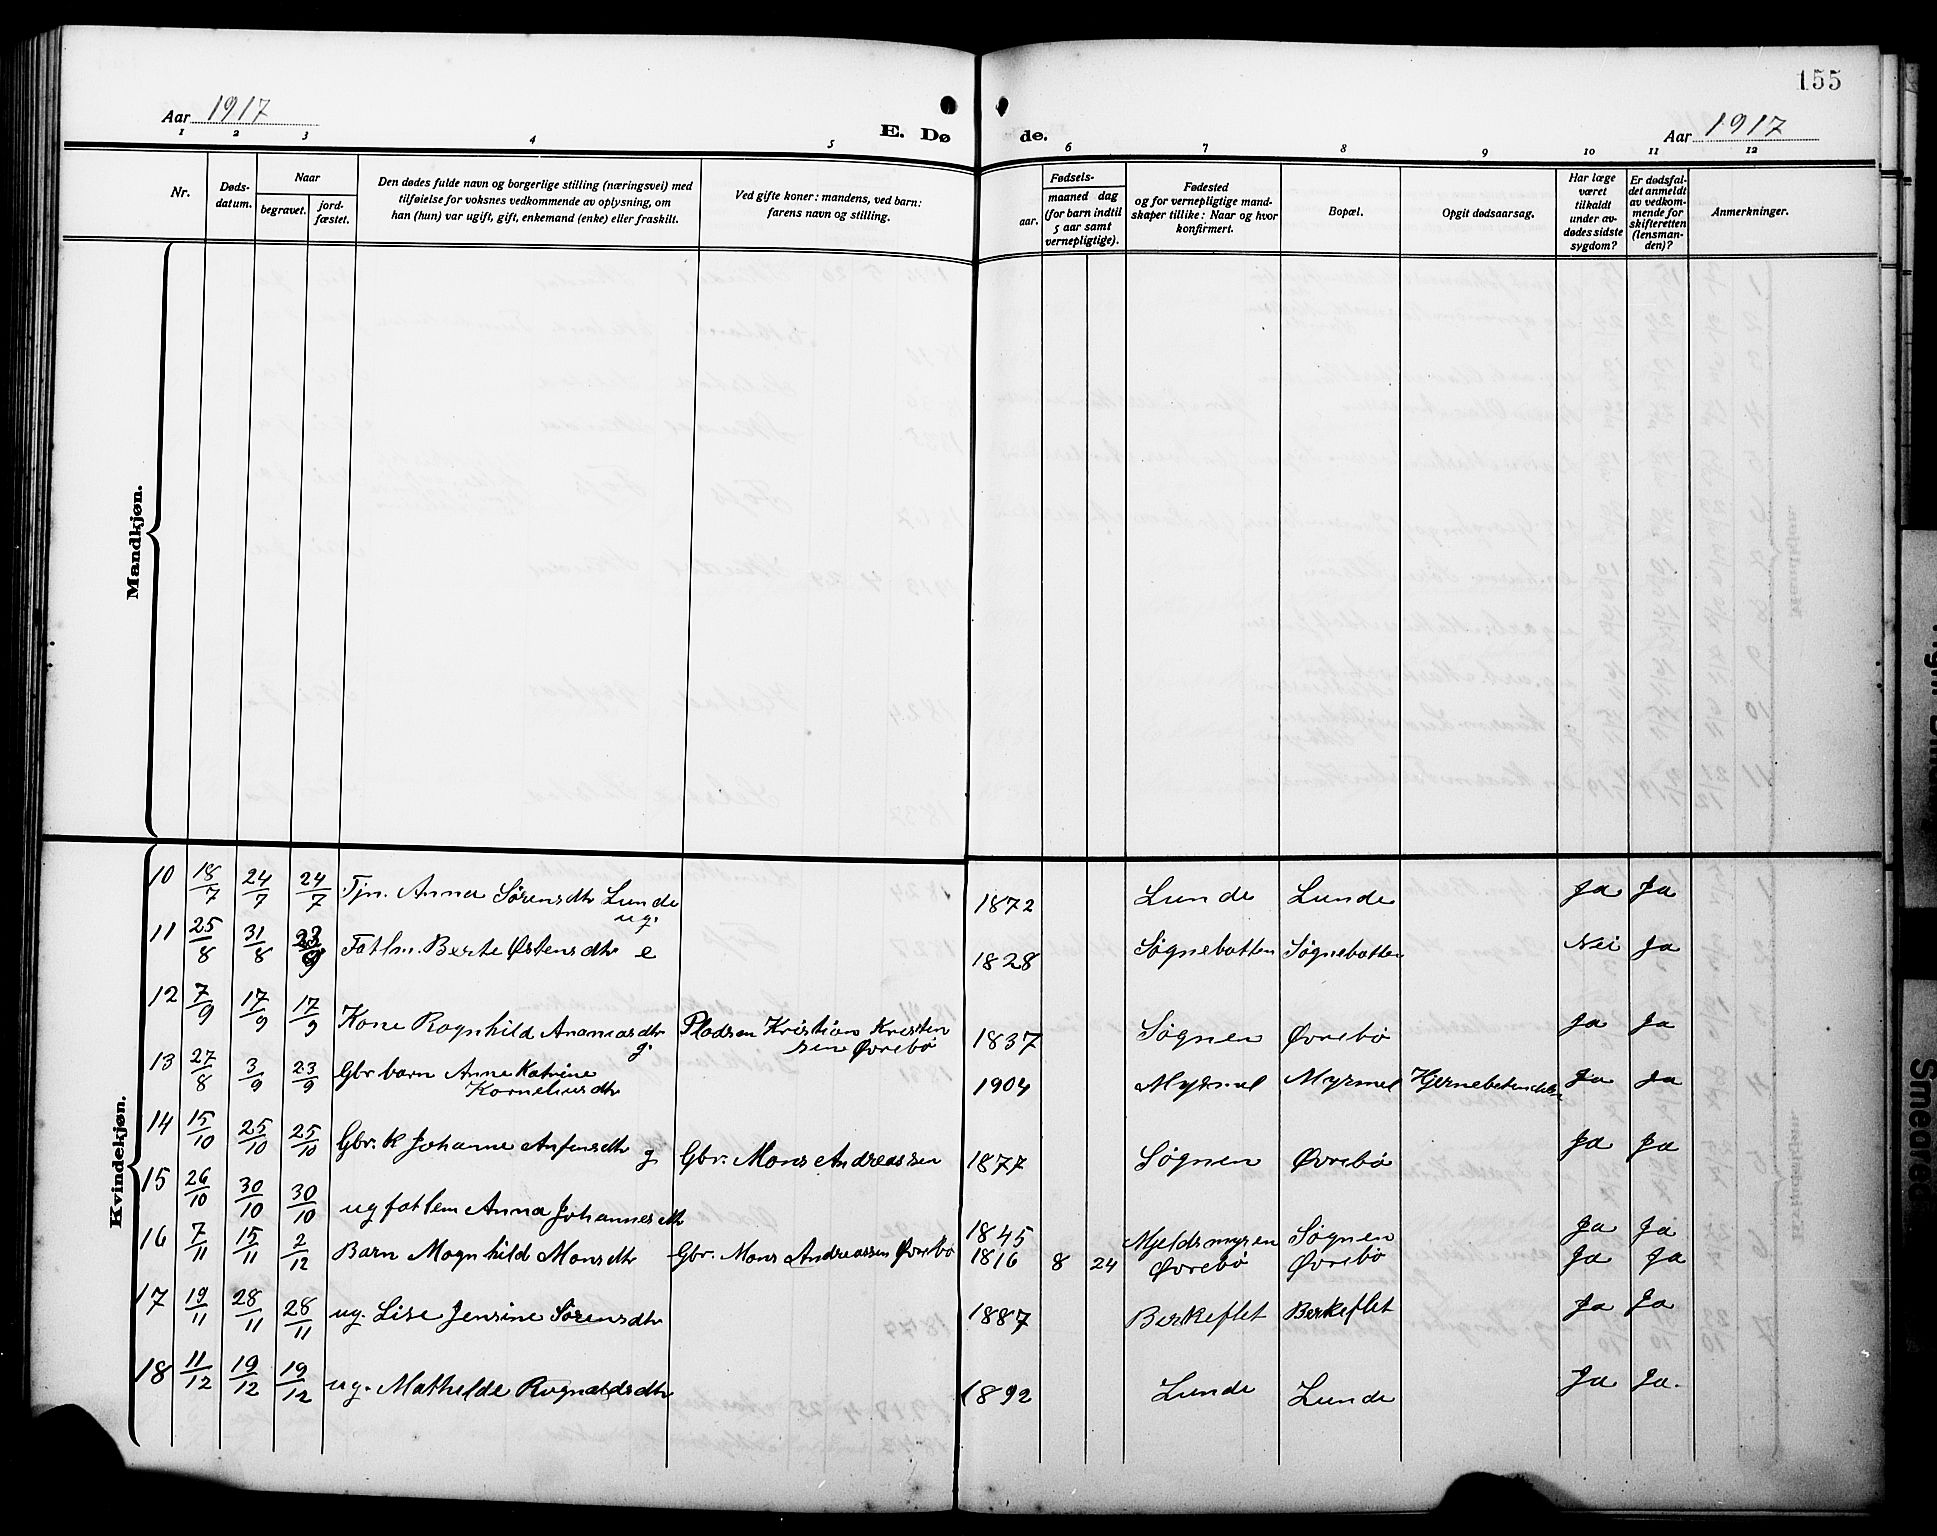 155
Aar 1917
E. Dø de.
Aar 1917
1 2 3 4 5 6 7 8 9 10 11 12
Nr.
Døds-
datum.
Naar
begravet.
jord-
fæstet.
Den dødes fulde navn og borgerlige stilling (næringsvei) med
tilføielse for voksnes vedkommende av oplysning, om
han (hun) var ugift, gift, enkemand (enke) eller fraskilt.
Ved gifte koner: mandens, ved barn:
farens navn og stilling.
Fødsels-
aar.
maaned dag
(for barn indtil
5 aar samt
vernepligtige).
Fødested
og for vernepligtige mand-
skaper tillike: Naar og hvor
konfirmert.
Bopæl.
Opgit dødsaarsag.
Har læge
været
tilkaldt
under av-
dødes sidste
sygdom?
Er dødsfal-
det anmeldt
av vedkom-
mende for
skifteretten
(lensman-
den)?
Anmerkninger.
Mandkjøn.
Kvindekjøn.
10 18/7 24/7 24/7 Tjn. Anna Sørensdtr Lunde ug. 1872 Lunde Lunde Ja Ja
11 25/8 31/8 23/9 Fatln. Berte Østensdtr e 1828 Søgnebotten Søgnebotten Nei Ja
12 7/9 17/9 17/9 Kone Ragnhild Ananiasdtr g. Pladsm Kristian Kristen
sen Øvrebø 1837 Søgnen Øvrebø Ja Ja
13 27/8 3/9 23/9 Gbr barn Anne Katrine
Korneliusdtr 1904 Myrmel Myrmel Hjernebetendelse Ja Ja
14 15/10 25/10 25/10 Gbr. k Johanne Anfinsdtr g. Gbr. Mons Andreassen 1877 Søgnen Øvrebø Ja Ja
15 26/10 30/10 30/10 ug fatlem Anna Johannesdtr 1845 Mjeldsmyren Søgnen Ja Ja
16 7/11 15/11 2/12 Barn Magnhild Monsdtr Gbr. Mons Andreassen Øvrebø 1816 8 24 Øvrebø Øvrebø Ja Ja
17 19/11 28/11 28/11 ug. Lise Jensine Sørensdtr 1887 Berkeflet Berkeflet Ja Ja
18 11/12 19/12 19/12 ug. Mathilde Rognaldsdtr 1892 Lunde Lunde Ja Ja.
Smeared